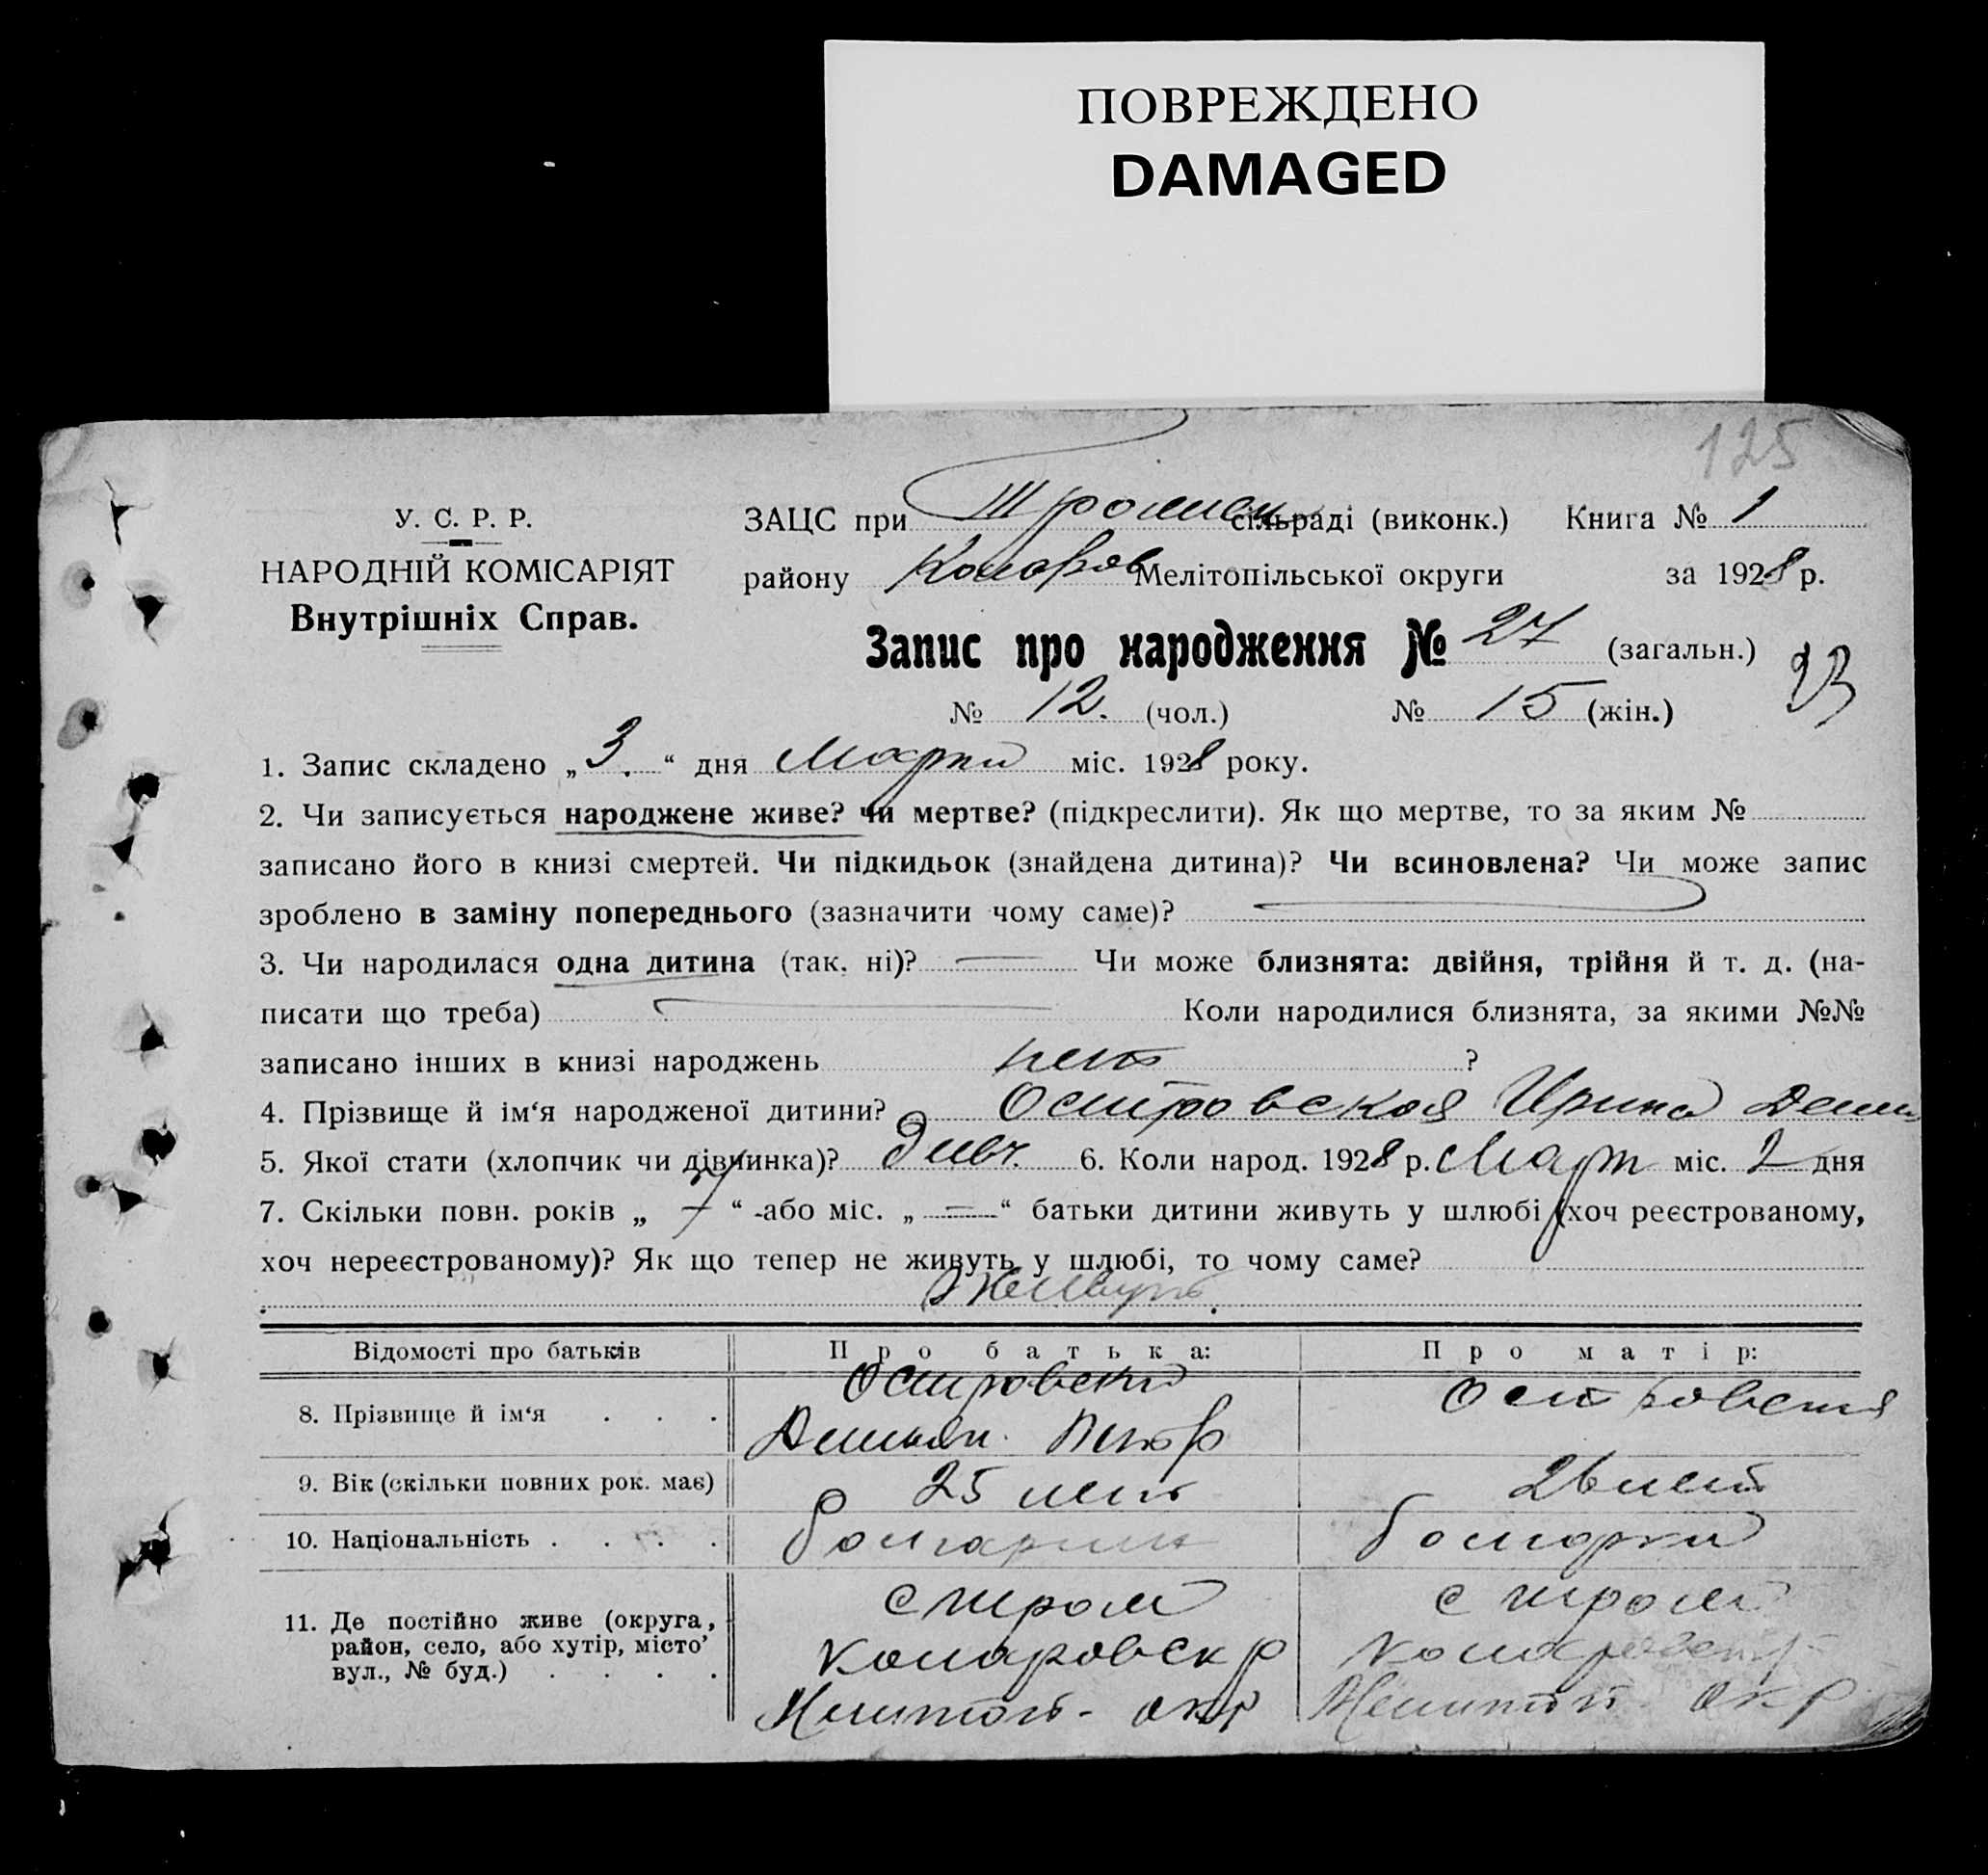 ПОВРЕЖДЕНО
DAMAGED
125
У. С. Р. Р.
НАРОДНІЙ КОМІСАРІЯТ
Внутрішніх Справ.
ЗАЦС при сільраді (виконк.) Книга № 1
району Комаров Мелітопільської округи за 1928 р.
Запис про народження № 27 (загальн.)
№ 12. (чол.) № 15 (жін.)
1. Запис складено „3.“ дня Марта міс. 1928 року.
2. Чи записується народжене живе? чи мертве? (підкреслити). Як що мертве, то за яким №
записано його в книзі смертей. Чи підкидьок (знайдена дитина)? Чи всиновлена? Чи може запис
зроблено в заміну попереднього (зазначити чому саме)?
3. Чи народилася одна дитина (так, ні)? — Чи може близнята: двійня, трійня й т. д. (на-
писати що треба) Коли народилися близнята, за якими №№
записано інших в книзі народжень нет ?
4. Прізвище й ім‘я народженої дитини? Островская Ирина
5. Якої стати (хлопчик чи дівчинка)? 6. Коли народ. 1928 р. Март міс. 2 дня
7. Скільки повн. років „ 7 “ -або міс. „ — “ батьки дитини живуть у шлюбі (хоч реєстрованому,
хоч нереєстрованому)? Як що тепер не живуть у шлюбі, то чому саме?
Живуть.
Відомості про батьків Про батька: Про матір:
8. Прізвище й ім‘я . . . Островский Демьян Петр Островская
9. Вік (скільки повних рок. має) 25 лет 26 лет
10. Національність . . . . болгарин болгарка
11. Де постійно живе (округа, район, село, або хутір, місто, вул., № буд.) . . . .
с Тром с Тром
Комаровск р Комаровск р
Мелитоп- окр Мелитоп- окр